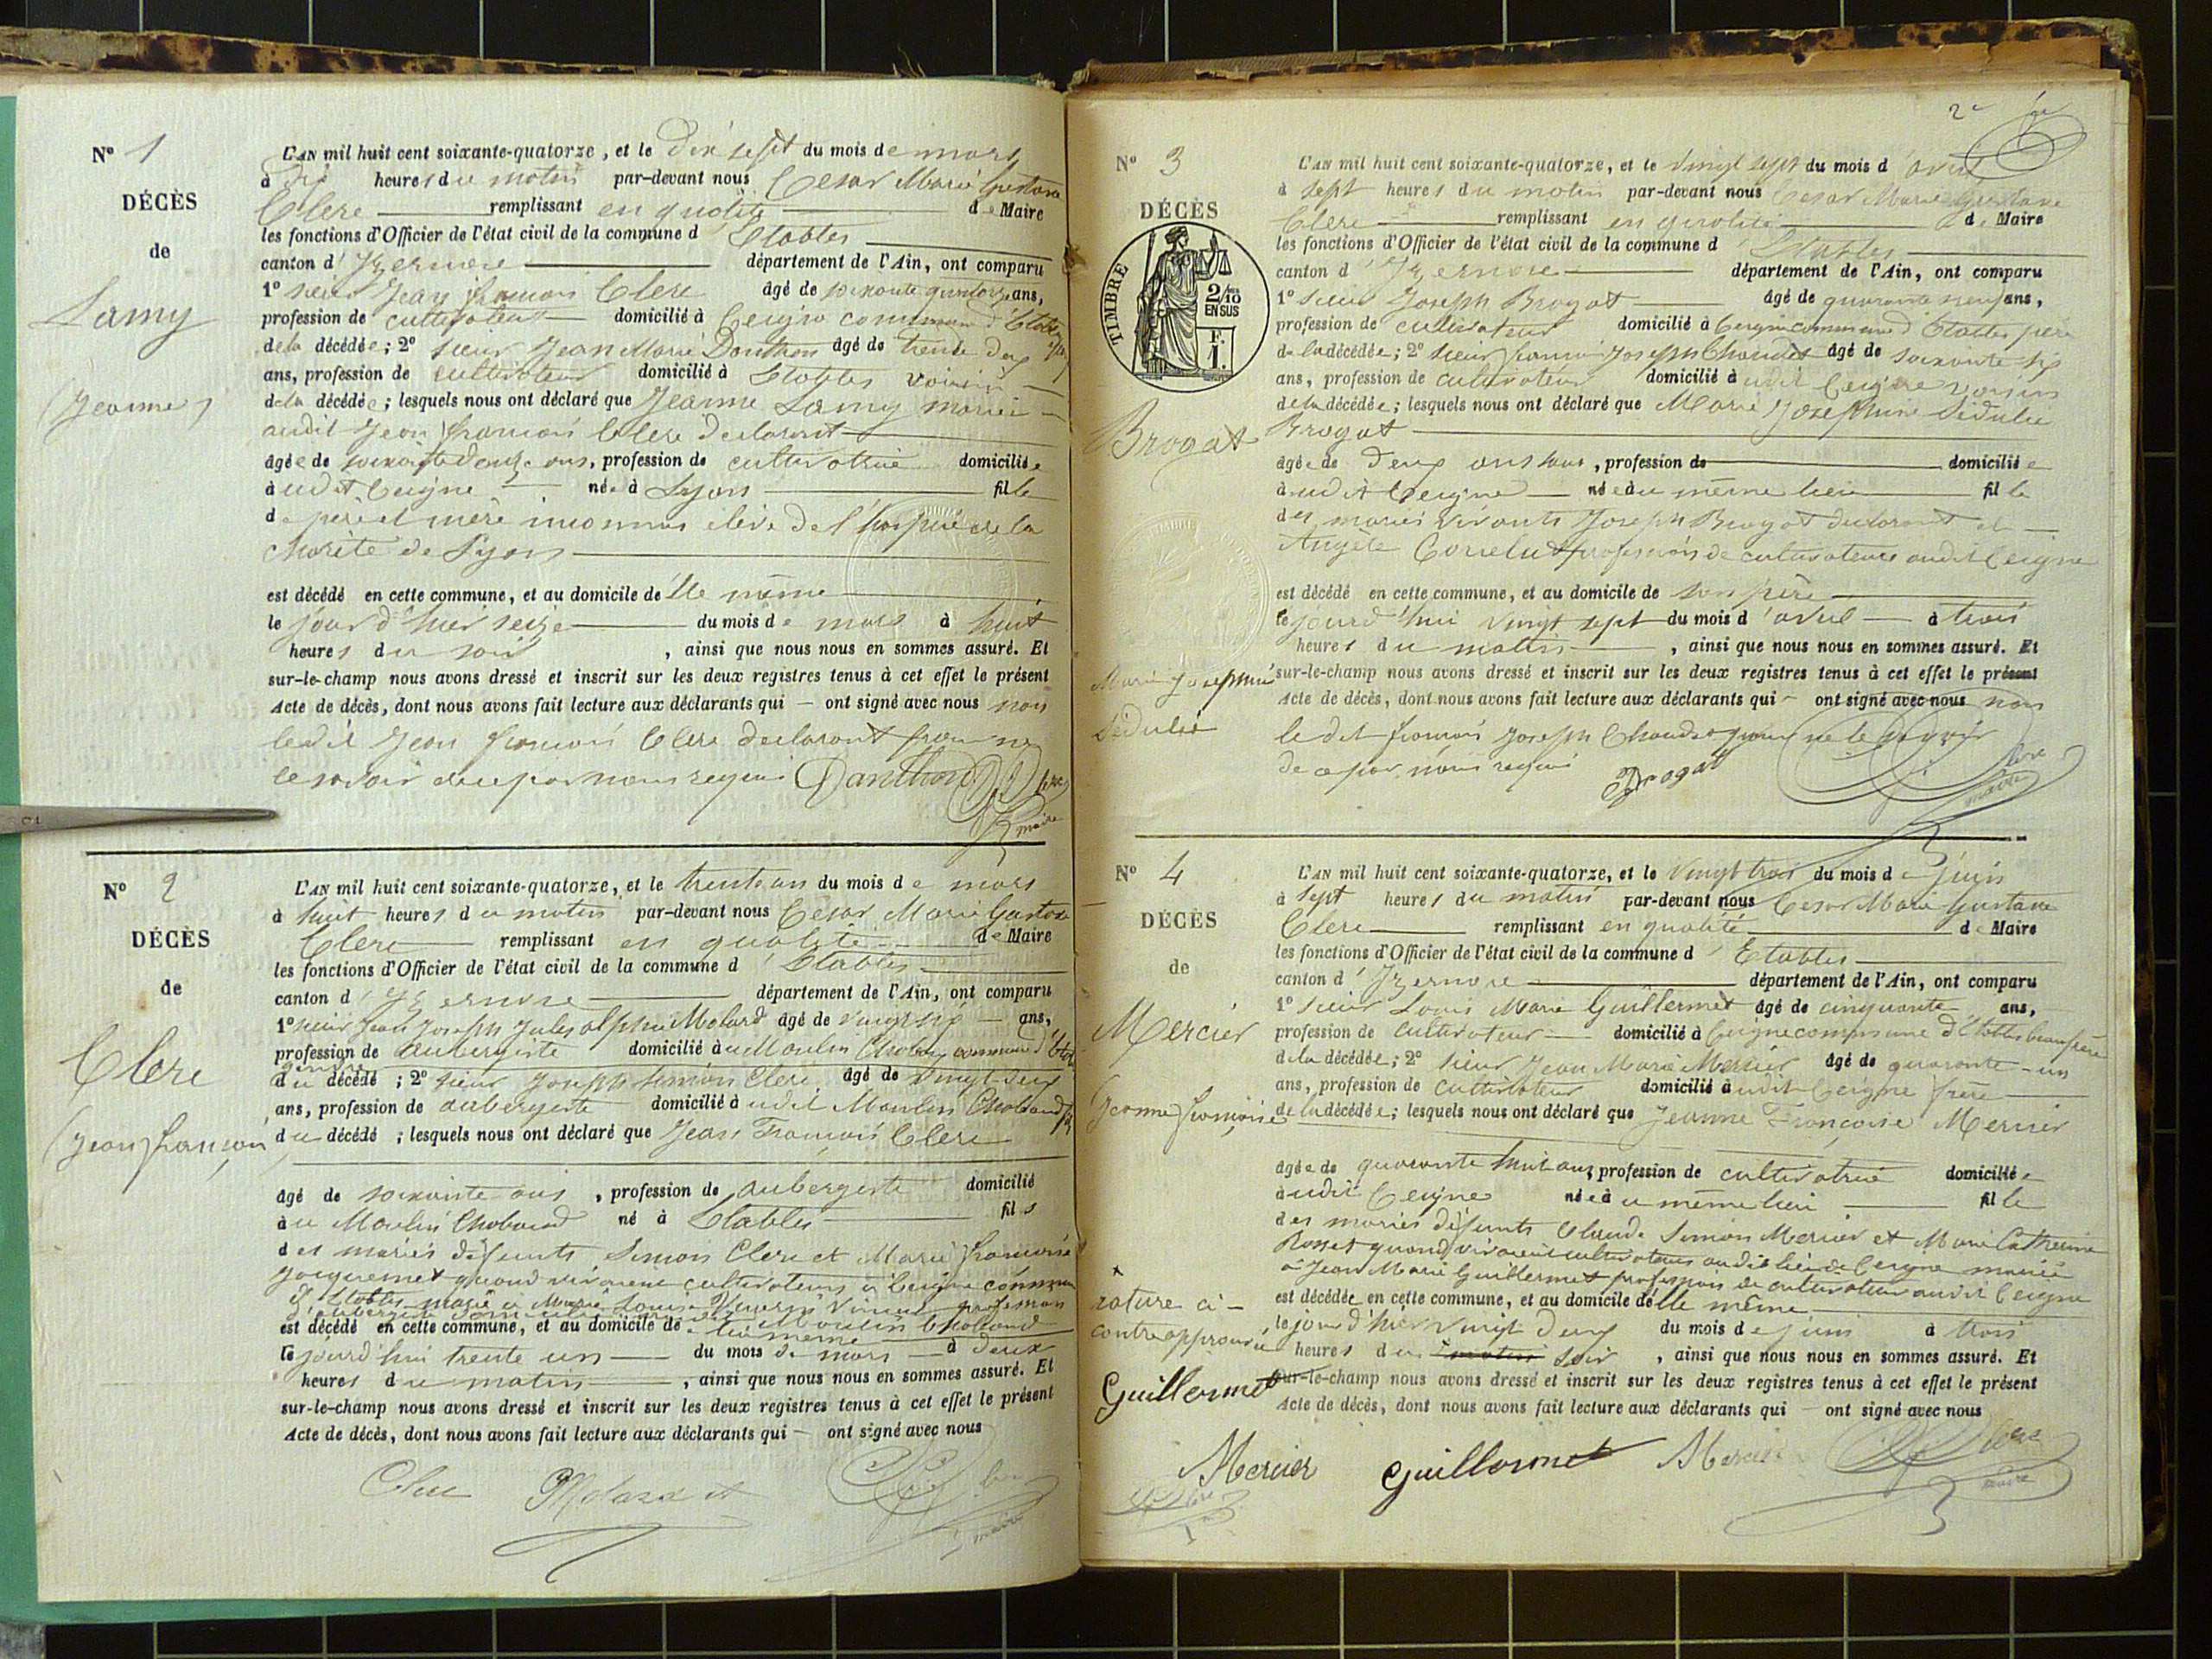 N° 1
DÉCÈS
de
Lamy
(Jeanne)
L'AN mil huit cent soixante-quatorze, et le dix sept du mois de mars
à dix heures du matin par-devant nous Cesar Marie Gustave
Clere remplissant en qualité de Maire
les fonctions d'Officier de l'état civil de la commune d'Etables
canton d'Izernore département de l'Ain, ont comparu
1° sieur Jean françois Clere âgé de soixante quatorze ans,
profession de cultivateur domicilié à Ceigne commune d'Etables
de la décédée; 2° sieur Jean Marie Danthon âgé de trente deux
ans, profession de cultivateur domicilié à Etables voisin
de la décédée; lesquels nous ont déclaré que Jeanne Lamy mariée
audit Jean françois Clere declarant
âgée de soixante douze ans, profession de cultivatrice domiciliée
audit Ceigne née à Lyon fille
de père et mère inconnus élève de l'hospice de la
charité de Lyon
est décédé en cette commune, et au domicile de elle même
le jour d'hier seize du mois de mars à huit
heures du soir, ainsi que nous nous en sommes assuré. Et
sur-le-champ nous avons dressé et inscrit sur les deux registres tenus à cet effet le présent
Acte de décès, dont nous avons fait lecture aux déclarants qui ont signé avec nous non
ledit Jean françois Clere declarant pour ne
le savoir de ce par nous requis Danthon Clere
maire
N° 2
DÉCÈS
de
Clere
(Jean françois
L'AN mil huit cent soixante-quatorze, et le trente un du mois de mars
à huit heures du matin par-devant nous Cesar Marie Gustave
Clere remplissant en qualité de Maire
les fonctions d'Officier de l'état civil de la commune d'Etables
canton d'Izernore département de l'Ain, ont comparu
1° sieur Jean Joseph Jules alphée Molard âgé de vingt six ans,
profession de aubergiste domicilié au Moulin Chabaud commune d'
gendre
du décédé; 2° sieur Joseph Simon Clere âgé de vingt deux
ans, profession de aubergiste domicilié audit Moulin Chabaud
du décédé; lesquels nous ont déclaré que Jean François Clere
âgé de soixante ans, profession de aubergiste domicilié
au Moulin Chabaud né à Etables fils
des mariés défunts Simon Clere et Marie françoise
Jacquemet quand vivaient cultivateurs à Ceigne commune
d'Etables marié à Marie Louise profession
est décédé en cette commune, et au domicile de lui même
le jourd'hui trente un du mois de mars à deux
heures du matin, ainsi que nous nous en sommes assuré. Et
sur-le-champ nous avons dressé et inscrit sur les deux registres tenus à cet effet le présent
Acte de décès, dont nous avons fait lecture aux déclarants qui ont signé avec nous
Clere Molard Clere
maire
2e
N° 3
DÉCÈS
TIMBRE
2/10
EN SUS
F.
1.
Brogat
Marie Josephine
Sidulie
L'AN mil huit cent soixante-quatorze, et le vingt sept du mois d'avril
à sept heures du matin par-devant nous Cesar Marie Gustave
Clere remplissant en qualité de Maire
les fonctions d'Officier de l'état civil de la commune d'Etables
canton d'Izernore département de l'Ain, ont comparu
1° sieur Joseph Brogat âgé de quarante neuf ans,
profession de cultivateur domicilié à Ceigne commune d'Etables père
de la décédée; 2° sieur françois Joseph Chaudet âgé de soixante six
ans, profession de cultivateur domicilié audit Ceigne voisin
de la décédée; lesquels nous ont déclaré que Marie Josephine Sidulie
Brogat
âgée de deux ans, profession de domiciliée
audit Ceigne née au même lieu fille
des mariés vivants Joseph Brogat declarant et
Angèle profession de cultivateurs audit Ceigne
est décédé en cette commune, et au domicile de son père
le jourd'hui vingt sept du mois d'avril à trois
heures du matin, ainsi que nous nous en sommes assuré. Et
sur-le-champ nous avons dressé et inscrit sur les deux registres tenus à cet effet le présent
Acte de décès, dont nous avons fait lecture aux déclarants qui ont signé avec nous non
le dit françois Joseph Chaudet pour ne le savoir
de ce par nous requis Brogat Clere
maire
N° 4
DÉCÈS
de
Mercier
Jeanne françoise
L'AN mil huit cent soixante-quatorze, et le vingt trois du mois de juin
à sept heures du matin par-devant nous Cesar Marie Gustave
Clere remplissant en qualité de Maire
les fonctions d'Officier de l'état civil de la commune d'Etables
canton d'Izernore département de l'Ain, ont comparu
1° sieur Louis Marie Guillermet âgé de cinquante ans,
profession de cultivateur domicilié à Ceigne commune d'Etables beau frère
de la décédée; 2° sieur Jean Marie Mercier âgé de quarante-un
ans, profession de cultivateur domicilié audit Ceigne frère
de la décédée; lesquels nous ont déclaré que Jeanne Françoise Mercier
âgée de quarante huit ans, profession de cultivatrice domiciliée
audit Ceigne née au même lieu fille
des mariés défunts Claude Simon Mercier et Marie Catherine
Rosset quand vivaient cultivateurs audit lieu de Ceigne mariée
à Jean Marie Guillermet profession de cultivateur audit Ceigne
est décédée en cette commune, et au domicile d'elle même
le jour d'hier vingt deux du mois de juin à trois
heures du matin soir, ainsi que nous nous en sommes assuré. Et
sur-le-champ nous avons dressé et inscrit sur les deux registres tenus à cet effet le présent
Acte de décès, dont nous avons fait lecture aux déclarants qui ont signé avec nous
rature ci-
contre approuvée
Guillermet
Mercier Guillermet Mercier Clere
maire